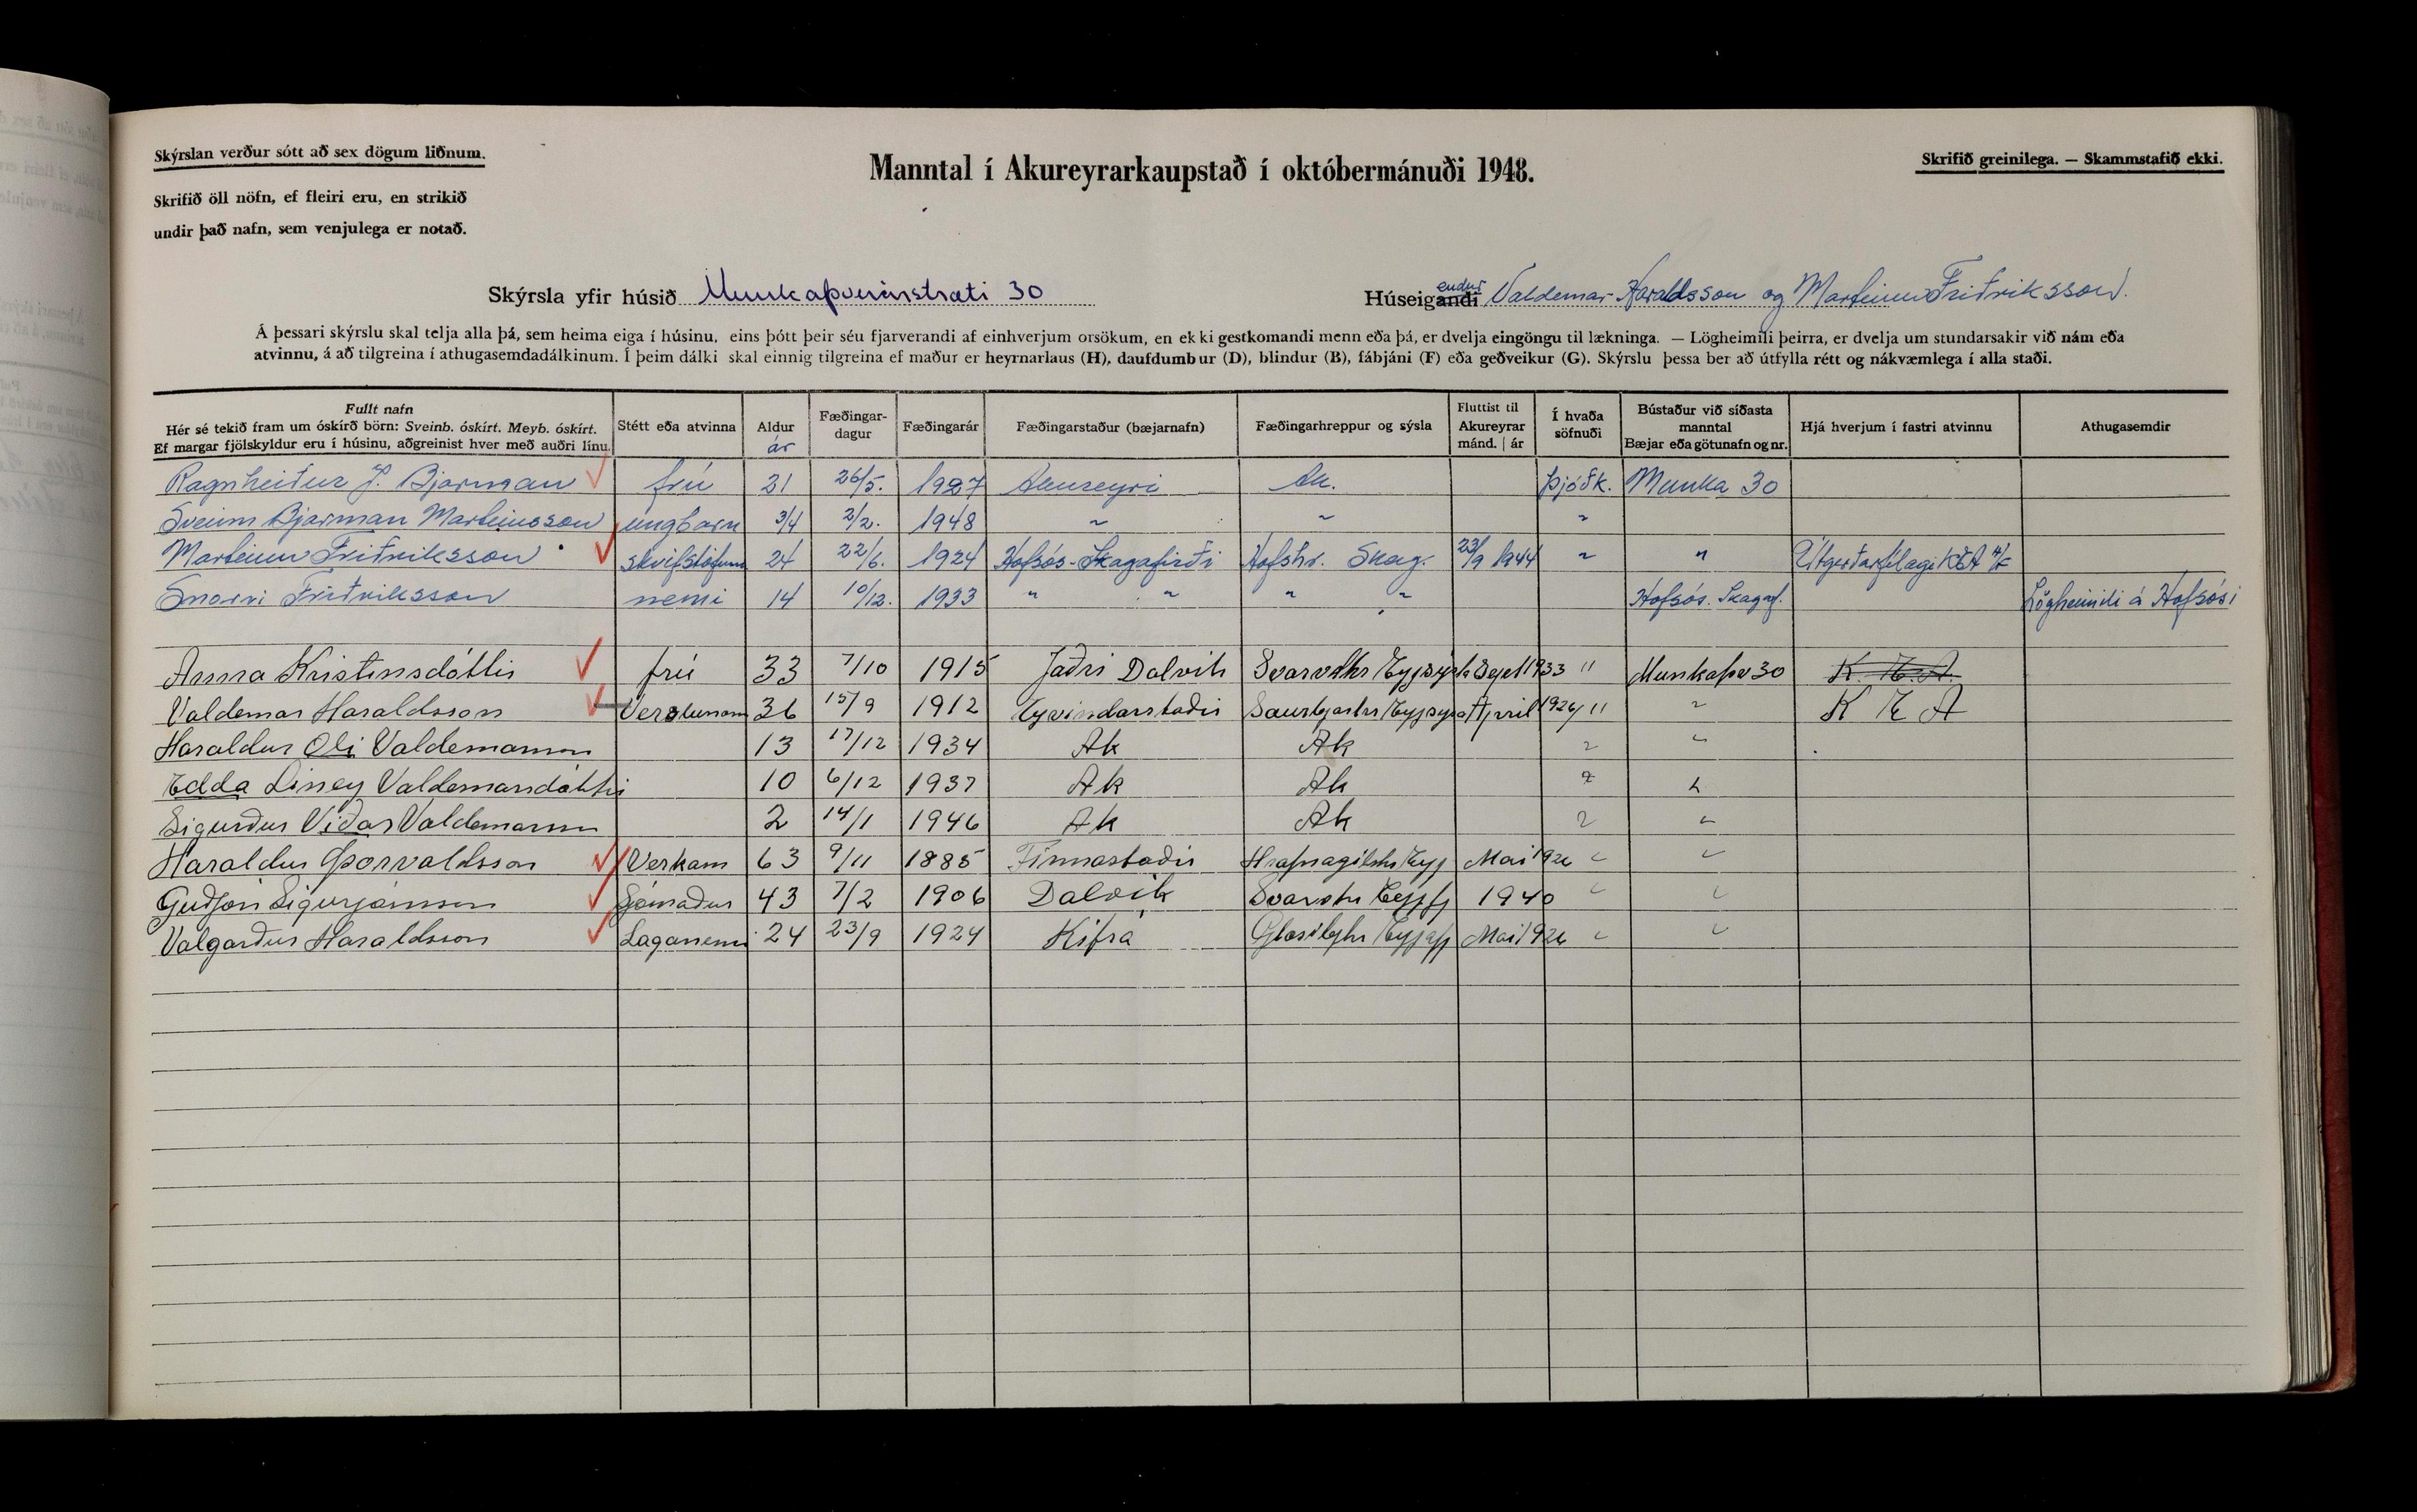 Skýrslan verður sótt að sex dögum liðnum.
Skrifið öll nöfn, ef fleiri eru, en strikið
undir það nafn, sem venjulega er notað.
Manntal í Akureyrarkaupstað í októbermánuði 1948.
Skrifið greinilega. — Skammstafið ekki.
Skýrsla yfir húsið Munkaþverárstræti 30
Húseigandi endur Valdemar Haraldsson og Marteinn Friðriksson.
Á þessari skýrslu skal telja alla þá, sem heima eiga í húsinu, eins þótt þeir séu fjarverandi af einhverjum orsökum, en ekki gestkomandi menn eða þá, er dvelja eingöngu til lækninga. — Lögheimili þeirra, er dvelja um stundarsakir við nám eða
atvinnu, á að tilgreina í athugasemdadálkinum. Í þeim dálki skal einnig tilgreina ef maður er heyrnarlaus (H), daufdumbur (D), blindur (B), fábjáni (F) eða geðveikur (G). Skýrslu þessa ber að útfylla rétt og nákvæmlega í alla staði.
Fullt nafn
Hér sé tekið fram um óskírð börn: Sveinb. óskírt. Meyb. óskírt.
Ef margar fjölskyldur eru í húsinu, aðgreinist hver með auðri línu.
Stétt eða atvinna
Aldur
ár
Fæðingar-
dagur
Fæðingarár
Fæðingarstaður (bæjarnafn)
Fæðingarhreppur og sýsla
Fluttist til
Akureyrar
mánd. | ár
Í hvaða
söfnuði
Bústaður við síðasta
manntal
Bæjar eða götunafn og nr.
Hjá hverjum í fastri atvinnu
Athugasemdir
Ragnheiður J. Bjarman frú 21 26/5. 1927 Akureyri Ak. Þjóðk. Munka 30
Sveinn Bjarman Marteinsson ungbarn 3/4 2/2. 1948 " " "
Marteinn Friðriksson skrifstofum 24 22/6. 1924 Hofsós-Skagafirði Hofshr. Skag. 23/9 1944 " " Útgerðarfélagi KEA H/F
Snorri Friðriksson nemi 14 10/12. 1933 " " " " Hofsós. Skagaf. Lögheimili á Hofsósi
Anna Kristinsdóttir frú 33 7/10 1915 Jaðri Dalvík Sept 1933 " Munkaþv 30 K. E. A.
Valdemar Haraldsson Verslunarm 36 15/9 1912 Eyvindarstaðir Apríl 1926 " " K E A
Haraldur Óli Valdemarsson 13 17/12 1934 Ak Ak " "
Edda Líney Valdemarsdóttir 10 6/12 1937 Ak Ak " "
Sigurður Viðar Valdemarsson 2 14/1 1946 Ak Ak " "
Haraldur Þorvaldsson Verkam 63 9/11 1885 Finnastaðir Hrafnagilshr Eyj Mai 1926 " "
Guðjón Sigurjónsson Sjómaður 43 7/2 1906 Dalvík 1940 " "
Valgarður Haraldsson Laganemi 24 23/9 1924 Kífsá Mai 1926 " "